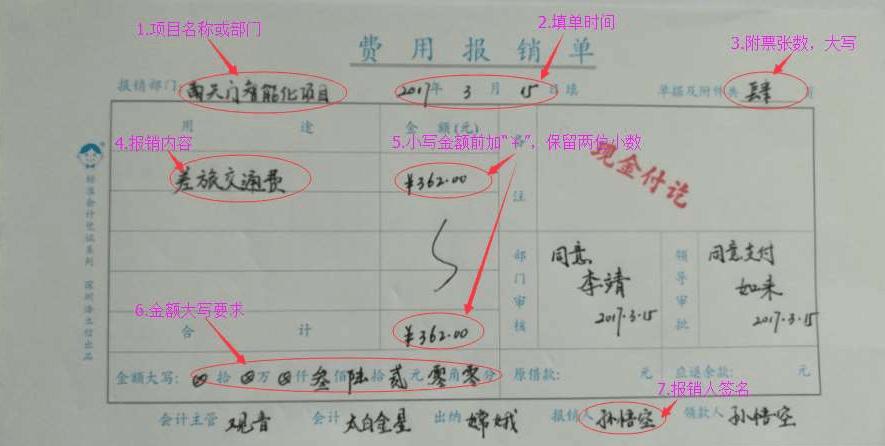 费用报销单
1.项目名称或部门
2.填单时间
3.附票张数，大写
报销部门：南天门智能化项目 2017年 3月 15日填 单据及附件共 肆 页
用途 金额(元) 备注
4.报销内容
5.小写金额前加“￥”，保留两位小数
差旅交通费 ¥362.00
现金付讫
部门审核 同意 李靖 2017.3.15
领导审批 同意支付 如来 2017.3.15
6.金额大写要求
合计 ¥362.00
金额大写： 拾 万 仟 叁佰 陆拾 贰元 零角 零分 原借款： 元 应退余款： 元
7.报销人签名
会计主管 观音 会计 太白金星 出纳 嫦娥 报销人 孙悟空 领款人 孙悟空
标准会计凭证系列 深圳泽立信出品